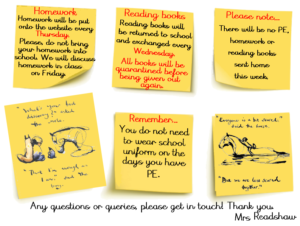 Homework
Homework will be put
onto the website every
Thursday.
Please, do not bring
your homework into
school. We will discuss
homework in class
on Friday.
Reading books
Reading books will
be returned to school
and exchanged every
Wednesday.
All books will be
quarantined before
being given out
again.
Please note...
There will be no PE,
homework or
reading books
sent home
this week.
"What's your best
discovery?" asked
the mole.
"That I'm enough as
I am," said the
boy.
Remember...
You do not need
to wear school
uniform on the
days you have
PE.
"Everyone is a bit scared,"
said the horse.
"But we are less scared
together."
Any questions or queries, please get in touch! Thank you.
Mrs Readshaw